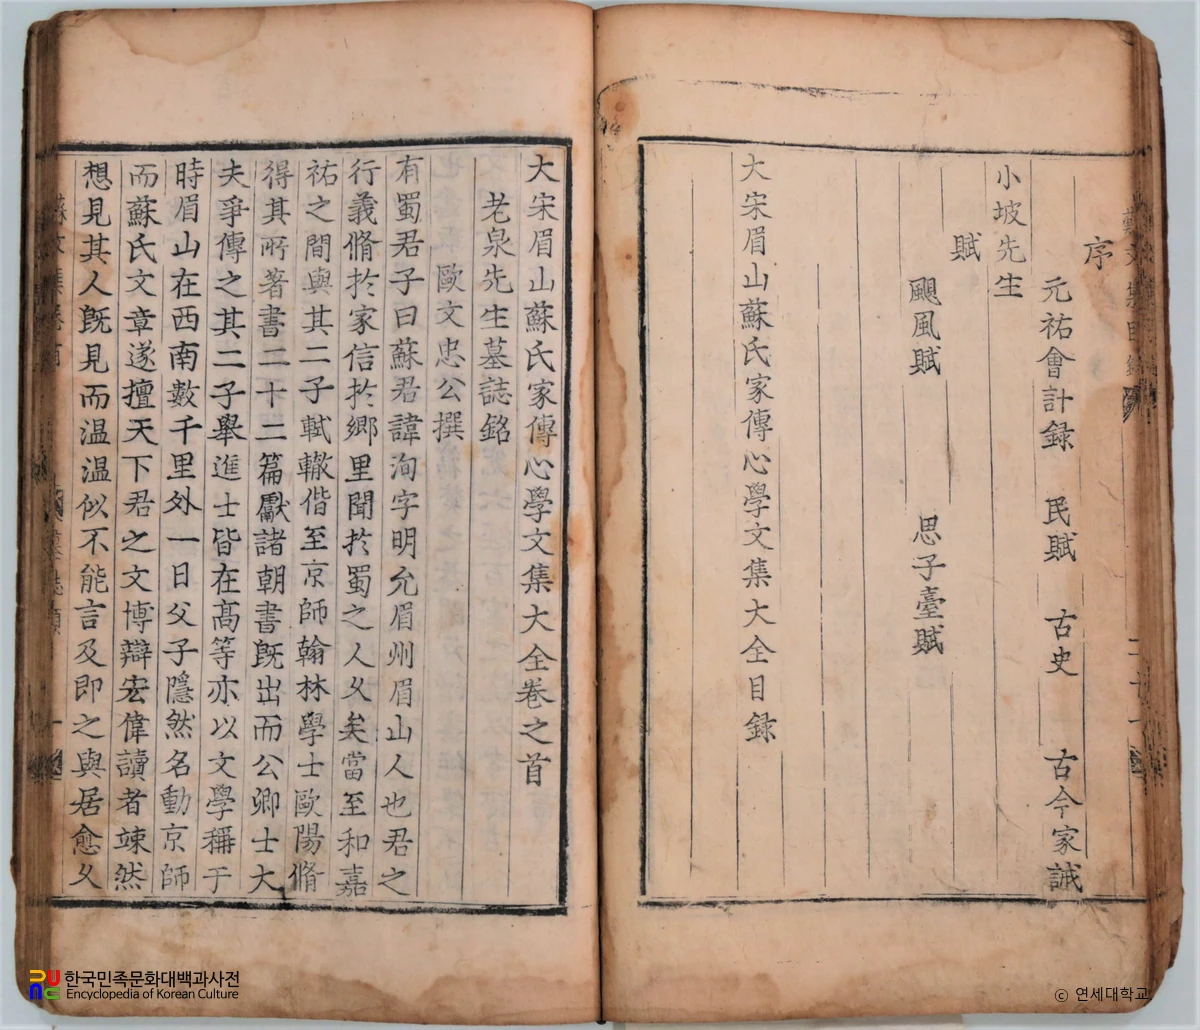 序
元祐會計録 民賦 古史 古今家誡
小坡先生
賦
颶風賦 思子臺賦
大宋眉山蘇氏家傳心學文集大全目録
大宋眉山蘇氏家傳心學文集大全卷之首
老泉先生墓誌銘
歐文忠公撰
有蜀君子曰蘇君諱洵字明允眉州眉山人也君之
行義脩扵家信扵鄉里聞扵蜀之人乆矣當至和嘉
祐之間與其二子軾轍偕至京師翰林學士歐陽脩
得其所著書二十二篇獻諸朝書旣出而公卿士大
夫爭傳之其二子舉進士皆在髙等亦以文學稱于
時眉山在西南數千里外一日父子隱然名動京師
而蘇氏文章遂擅天下君之文博辯宏偉讀者竦然
想見其人旣見而温温似不能言及即之與居愈乆
한국민족문화대백과사전
Encyclopedia of Korean Culture
© 연세대학교